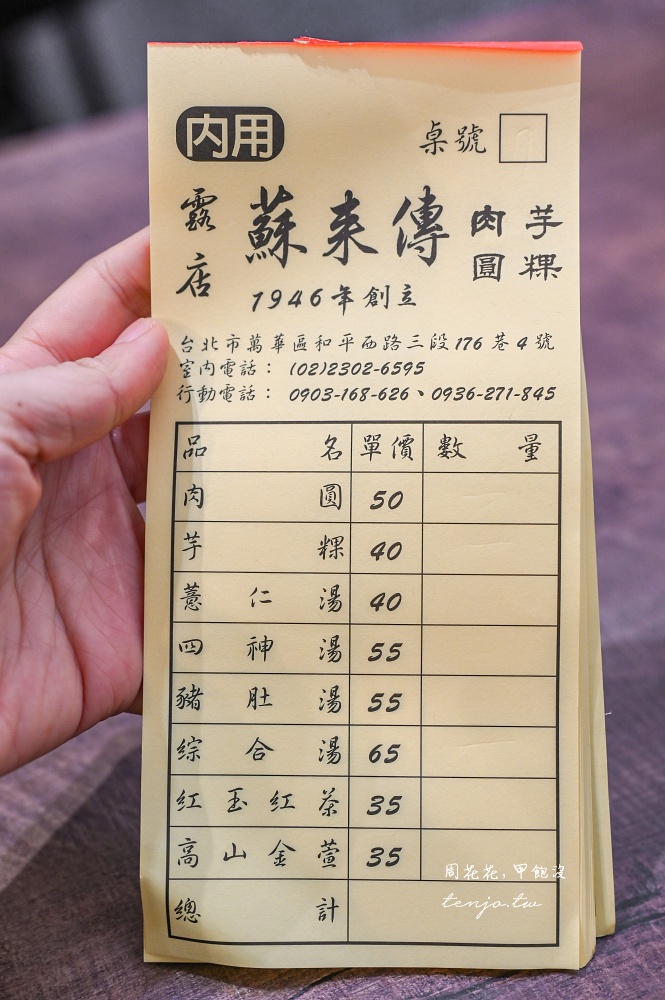 內用
桌號
露店 蘇来傳 肉圓 芋粿
1946年創立
台北市萬華區和平西路三段176巷4號
室內電話：(02)2302-6595
行動電話：0903-168-626、0936-271-845
品名 單價 數量
肉圓 50
芋粿 40
薏仁湯 40
四神湯 55
豬肚湯 55
綜合湯 65
紅玉紅茶 35
高山金萱 35
總計
周花花，甲飽沒
tenjo.tw